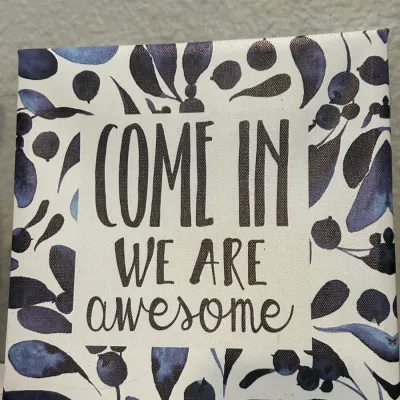 COME IN
WE ARE
awesome